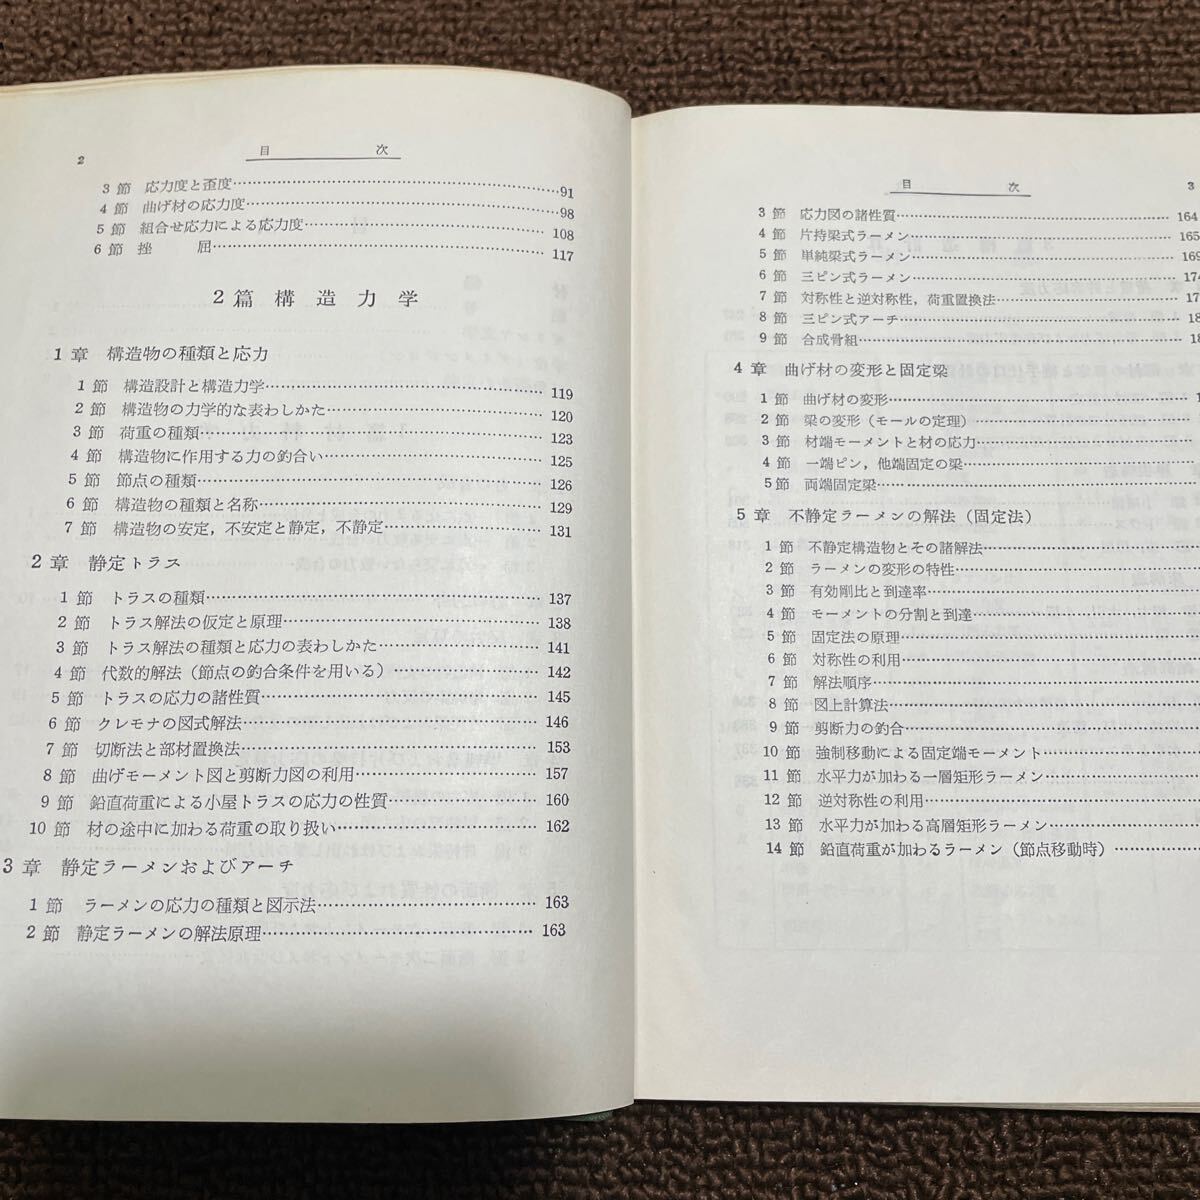 2
目 次
3 節 応力度と歪度……91
4 節 曲げ材の応力度……98
5 節 組合せ応力による応力度……108
6 節 挫 屈……117
2篇 構造力学
1 章 構造物の種類と応力
1 節 構造設計と構造力学……119
2 節 構造物の力学的な表わしかた……120
3 節 荷重の種類……123
4 節 構造物に作用する力の釣合い……125
5 節 節点の種類……126
6 節 構造物の種類と名称……129
7 節 構造物の安定，不安定と静定，不静定……131
2 章 静定トラス
1 節 トラスの種類……137
2 節 トラス解法の仮定と原理……138
3 節 トラス解法の種類と応力の表わしかた……141
4 節 代数的解法（節点の釣合条件を用いる）……142
5 節 トラスの応力の諸性質……145
6 節 クレモナの図式解法……146
7 節 切断法と部材置換法……153
8 節 曲げモーメント図と剪断力図の利用……157
9 節 鉛直荷重による小屋トラスの応力の性質……160
10 節 材の途中に加わる荷重の取り扱い……162
3 章 静定ラーメンおよびアーチ
1 節 ラーメンの応力の種類と図示法……163
2 節 静定ラーメンの解法原理……163
目 次
3
3 節 応力図の諸性質……164
4 節 片持梁式ラーメン……165
5 節 単純梁式ラーメン……169
6 節 三ピン式ラーメン……174
7 節 対称性と逆対称性，荷重置換法……17
8 節 三ピン式アーチ……18
9 節 合成骨組……18
4 章 曲げ材の変形と固定梁
1 節 曲げ材の変形……1
2 節 梁の変形（モールの定理）……
3 節 材端モーメントと材の応力……
4 節 一端ピン，他端固定の梁……
5 節 両端固定梁……
5 章 不静定ラーメンの解法（固定法）
1 節 不静定構造物とその諸解法……
2 節 ラーメンの変形の特性……
3 節 有効剛比と到達率……
4 節 モーメントの分割と到達……
5 節 固定法の原理……
6 節 対称性の利用……
7 節 解法順序……
8 節 図上計算法……
9 節 剪断力の釣合……
10 節 強制移動による固定端モーメント……
11 節 水平力が加わる一層矩形ラーメン……
12 節 逆対称性の利用……
13 節 水平力が加わる高層矩形ラーメン……
14 節 鉛直荷重が加わるラーメン（節点移動時）……